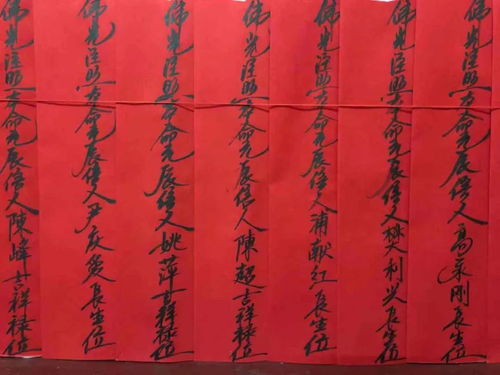 佛光注照本命元辰信人高刚長生位
佛光注照本命元辰信人利長生位
佛光注照本命元辰信人浦献红長生位
佛光注照本命元辰信人陳超吉祥禄位
佛光注照本命元辰信人姚萍吉祥禄位
佛光注照本命元辰信人尹庆長生位
佛光注照本命元辰信人陳峰吉祥禄位